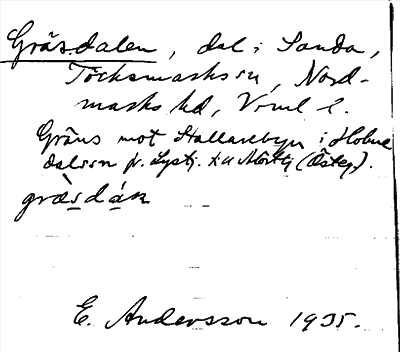 Gräsdalen, dal i Sanda,
Töcksmarks sn, Nord-
marks hd, Vrml. l.
Gräns mot Hallarebyn i Holme
dals sn fr. Lysetj. till Mörttj (Östeg).
græ̀sdáɴ
E. Andersson 1935.